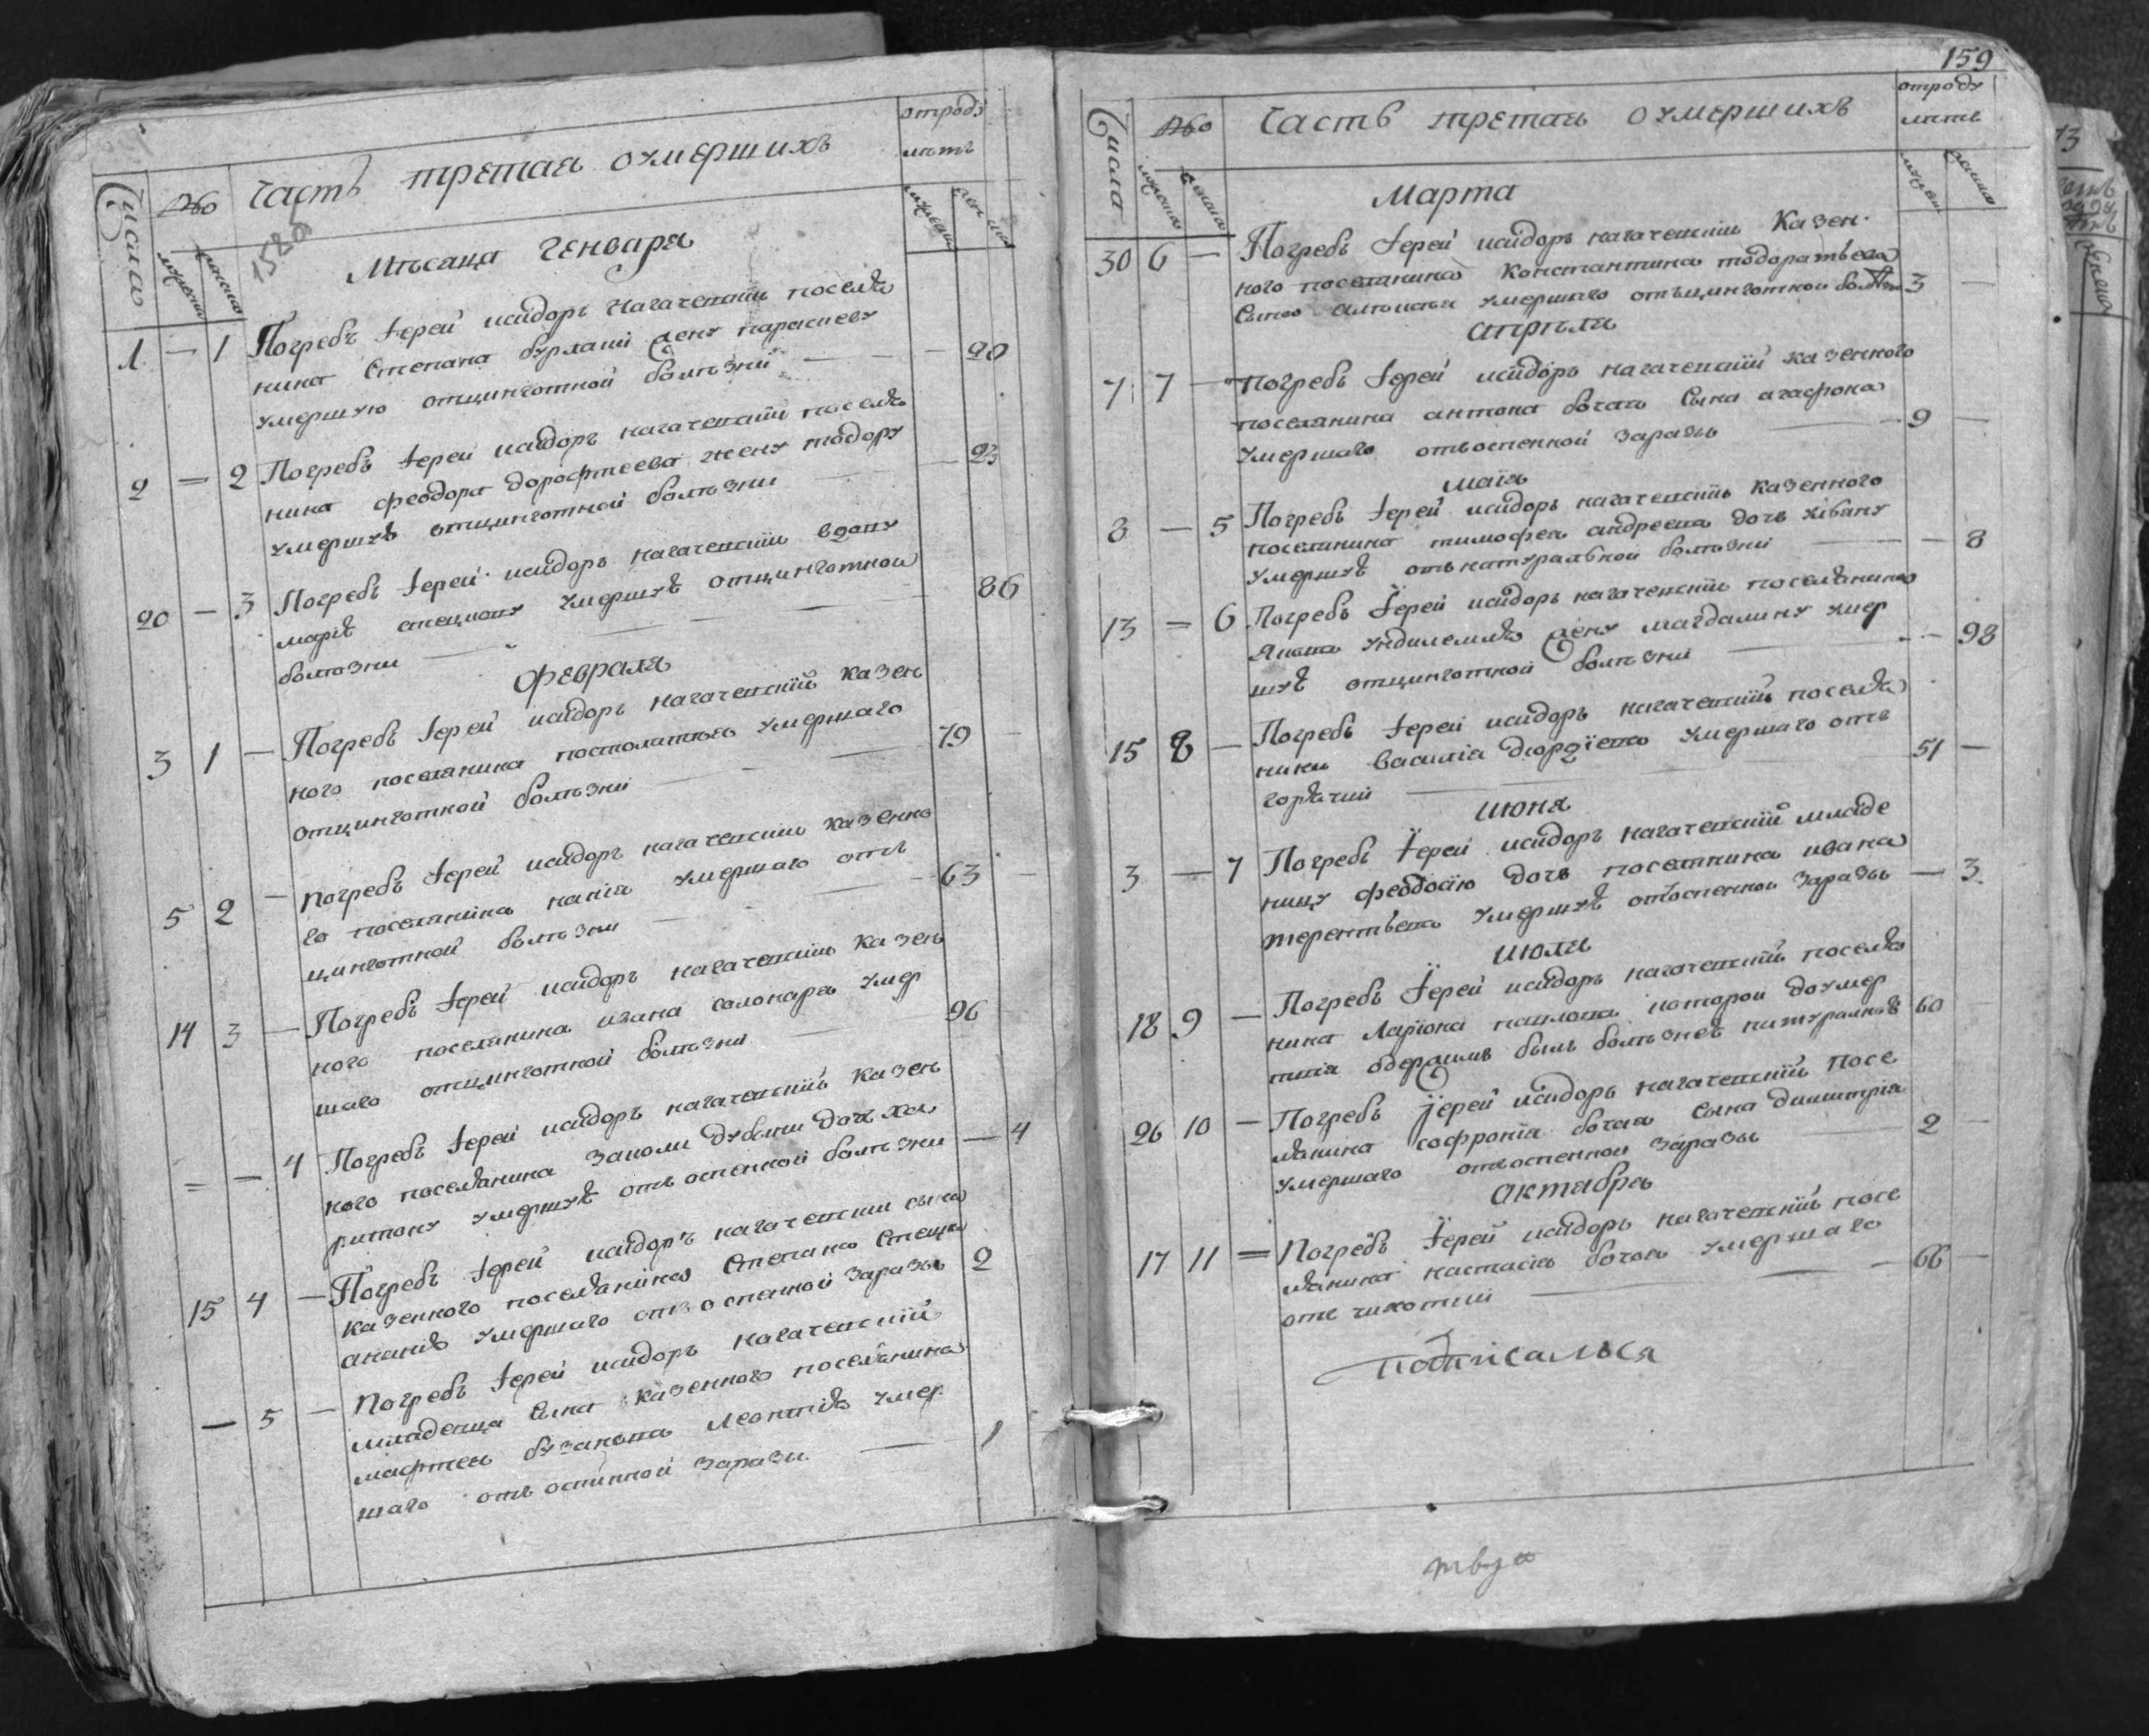 Числа
Часть третая оумершихъ
отроду
лѣтъ
Мѣсяца Генваря
1 — 1 Погребъ Іерей исидоръ нагачевскїй поселя
нина Степана бурлаки жену параскеву
умершую отцинготной болѣзни — 20
2 — 2 Погребъ Іерей исидоръ нагачевскїй поселя
нина феодора дорофтеева жену тодору
умершую отцинготной болѣзни — 23
20 — 3 Погребъ Іерей исидоръ нагачевскїй вдову
марїю умершую отцинготной
болѣзни — 86
Февраля
3 1 — Погребъ Іерей исидоръ нагачевскїй казен
ного поселянина умершаго
отцинготной болѣзни — 79
5 2 — Погребъ Іерей исидоръ нагачевскїй казенно
го поселянина умершаго отъ
цинготной болѣзни — 63
14 3 — Погребъ Іерей исидоръ нагачевскїй казен
ного поселянина ивана солонаря умер
шаго отцинготной болѣзни — 96
= — 4 Погребъ Іерей исидоръ нагачевскїй казен
ного поселянина дочь ха
ритону умершую отъ оспенной болѣзни — 4
15 4 — Погребъ Іерей исидоръ нагачевскїй сына
казенного поселянина Степана
ананїю умершаго отъ оспенной заразы 2
— 5 — Погребъ Іерей исидоръ нагачевскїй
младенца сына казенного поселянина
мафтея Леонтїя умер
шаго отъ оспинной заразы — 1
159
Числа
Часть третая оумершихъ
отроду
лѣтъ
Марта
30 6 — Погребъ Іерей исидоръ нагачевскїй Казен
ного поселянина Константина
сына умершаго отъцинготной болѣзни 3 —
априля
7 7 — Погребъ Іерей исидоръ нагачевскїй казенного
поселянина антона бочая Сына агафона
умершаго отъоспенной заразы — 9 —
маїя
8 — 5 Погребъ Іерей исидоръ нагачевскїй казенного
поселянина тимофея андреева дочь
умершую отъ натуралной болѣзни — 8
13 = 6 Погребъ Іерей исидоръ нагачевскїй поселянина
жену магдалину умер
шую отцинготной болѣзни — 98
15 8 — Погребъ Іерей исидоръ нагачевскїй поселя
нина василїя умершаго отъ
горячки — 51 —
июня
3 — 7 Погребъ Іерей исидоръ нагачевскїй младе
ницу феодосїю дочь поселянина ивана
терентьева умершую отъоспенной заразы — 3
июля
18 9 — Погребъ Іерей исидоръ нагачевскїй поселя
нина Ларїона павлова которой доумер
твїя одержимъ былъ болѣзнею натуралною 60
26 10 — Погребъ Іерей исидоръ нагачевскїй посе
лянина софронїя бочая сына димитрїя
умершаго отъоспенной заразы — 2 —
Октабря
17 11 = Погребъ Іерей исидоръ нагачевскїй посе
лянина настасїя бочая умершаго
отъ чихотки — 66 —
подписалься